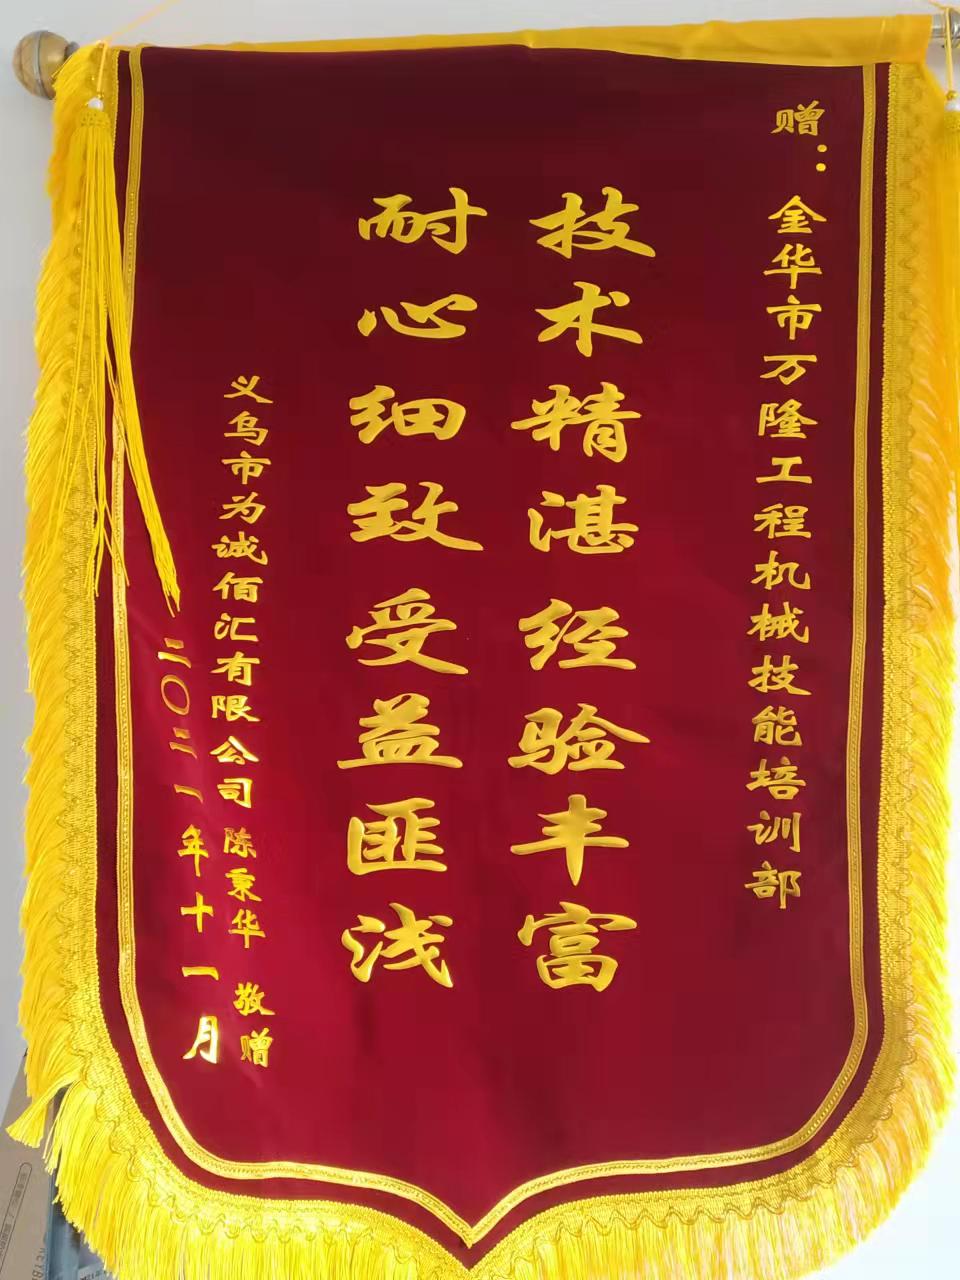 赠：金华市万隆工程机械技能培训部
技术精湛经验丰富
耐心细致受益匪浅
义乌市为诚佰汇有限公司 陈秉华 敬赠
二〇二一年十一月